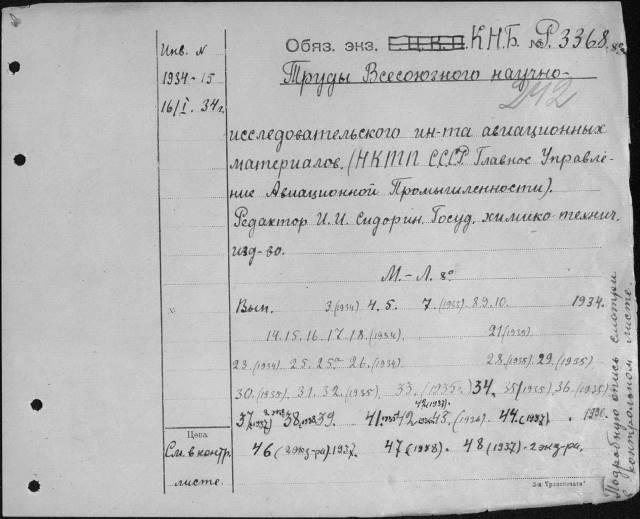 Инв. N
1934-15
16/I. 34г.
Обяз. экз. К.Н.Б. № Р.3368
Труды Всесоюзного научно-
242
исследовательского ин-та авиационных
материалов. (НКТП СССР. Главное Управле-
ние Авиационной Промышленности).
Редактор И.И. Сидорин. Госуд. химико-технич.
изд-во.
М.-Л. 8º
Вып. 3.(1934) 4. 5. 7. (1933) 8.9.10. 1934.
14.15.16.17.18.(1934). 21(1935)
23.(1934). 25. 25а 26.(1934). 28.(1935). 29.(1935)
30.(1935). 31. 32.(1935). 33. (1935.) 34. 35(1935). 36.(1935)
42(1937).
37(1937) 38. 39. 41. 42 43.(1936) 44.(1937)
46 (2экз-ра).1937. 47(1938). 48(1937). 2экз-ра.
Цена
См. в контр.
листе.
Подробную опись смотри
в контрольном листе.